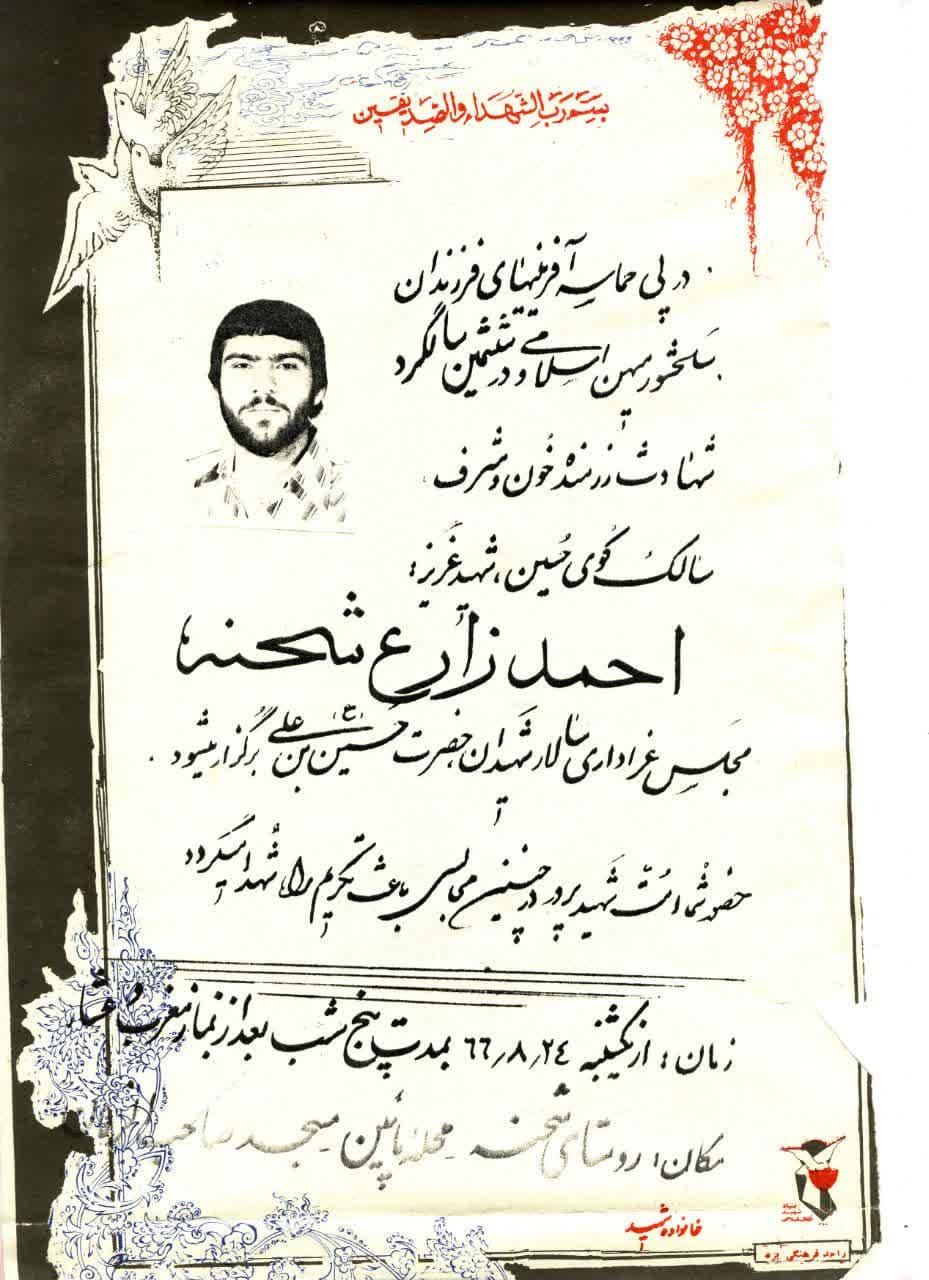 بسم رب الشهداء والصدیقین
در پی حماسه آفرینیهای فرزندان
سلحشور میهن اسلامی و در ششمین سالگرد
شهادت رزمنده خون و شرف
سالک کوی حسین، شهید عزیز:
احمد زارع شحنه
مجلس عزاداری سالار شهیدان حضرت حسین بن علی (ع) برگزار میشود.
حضور شما امت شهیدپرور در چنین مجالسی باعث تکریم راه شهدا میگردد
زمان: از یکشنبه ۶۶٫۸٫۲۴ بمدت پنج شب بعد از نماز مغرب و عشاء
مکان: روستای شحنه محله پائین مسجد صاحب
خانواده شهید
بنیاد شهید
واحد فرهنگی یزد